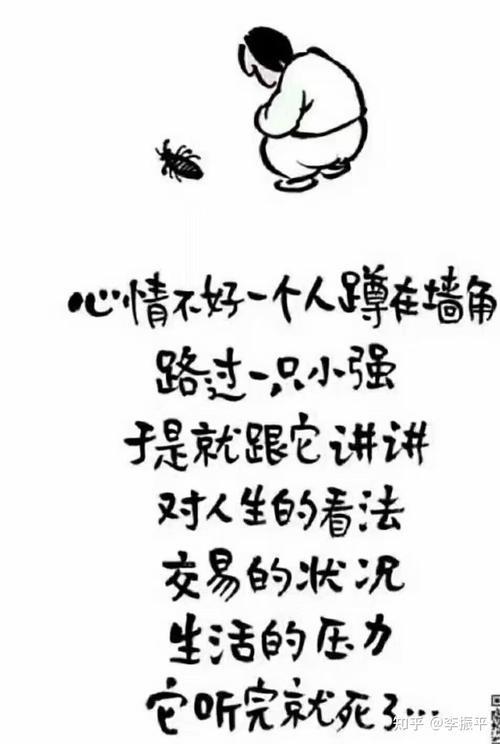 心情不好一个人蹲在墙角
路过一只小强
于是就跟它讲讲
对人生的看法
交易的状况
生活的压力
它听完就死了...
知乎 @李振平